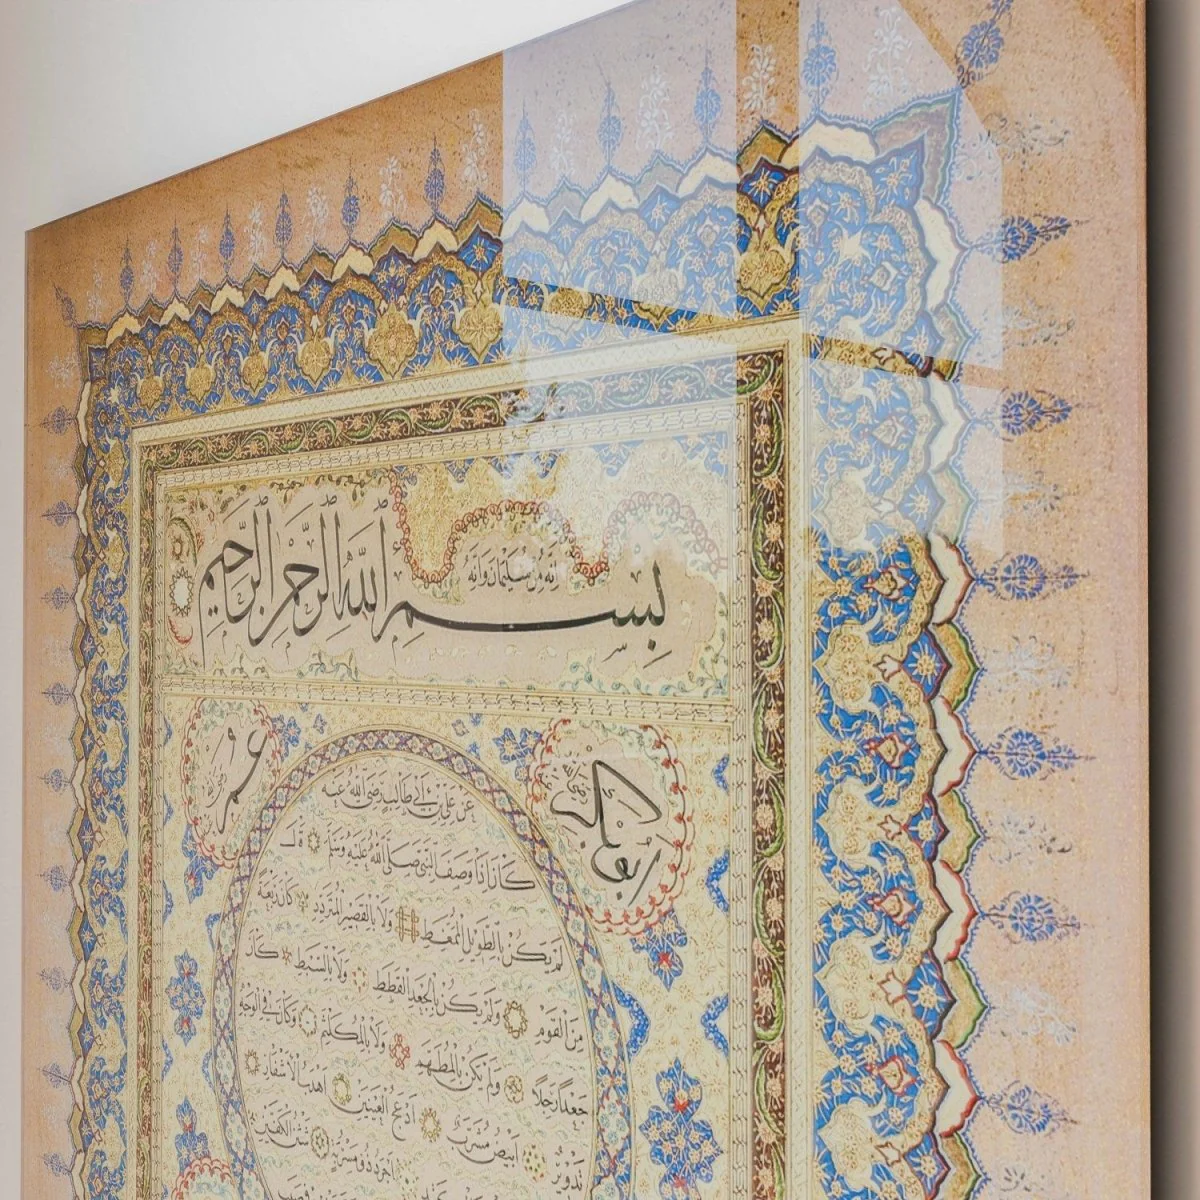 إنه من سليمان وإنه
بسم الله الرحمن الرحيم
ابو بكر
عمر
عن علي بن أبي طالب رضي الله عنه
كان إذا وصف النبي صلى الله عليه وسلم قال
لم يكن بالطويل الممغط ولا بالقصير المتردد وكان ربعة
من القوم ولم يكن بالجعد القطط ولا بالسبط كان
جعدا رجلا ولم يكن بالمطهم ولا بالمكلثم وكان في الوجه
تدوير ابيض مشرب ادعج العينين اهدب الأشفار
اجرد ذو مسربة شثن الكفين